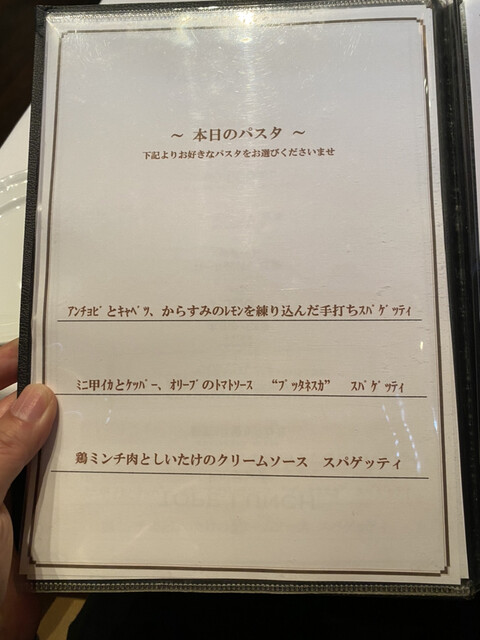 ～ 本日のパスタ ～
下記よりお好きなパスタをお選びくださいませ
ｱﾝﾁｮﾋﾞとｷｬﾍﾞﾂ、からすみのﾚﾓﾝを練り込んだ手打ちｽﾊﾟｹﾞｯﾃｨ
ﾐﾆ甲ｲｶとｹｯﾊﾟｰ、ｵﾘｰﾌﾞのﾄﾏﾄｿｰｽ “ﾌﾟｯﾀﾈｽｶ” ｽﾊﾟｹﾞｯﾃｨ
鶏ミンチ肉としいたけのクリームソース スパゲッティ